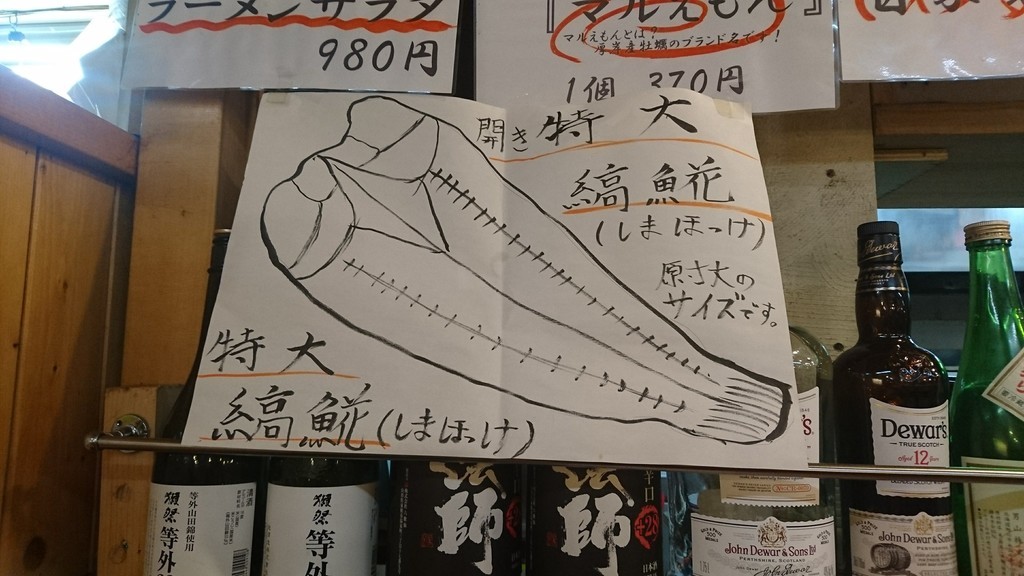 ラーメンサラダ
980円
『マルえもん』
マルえもんとは?
厚岸産牡蠣のブランド名です!
1個 370円
開き特大
縞𩸽
(しまほっけ)
原寸大の
サイズです。
特大
縞𩸽(しまほっけ)
獺祭 等外
等外山田錦使用
清酒
獺祭 等外
法師
法師
辛口
+28
日本酒
John Dewar & Sons Ltd
PERTHSHIRE, SCOTLAND
Dewar's
TRUE SCOTCH
Aged 12
John Dewar & Sons
PERTHSHIRE, SCOTLAND